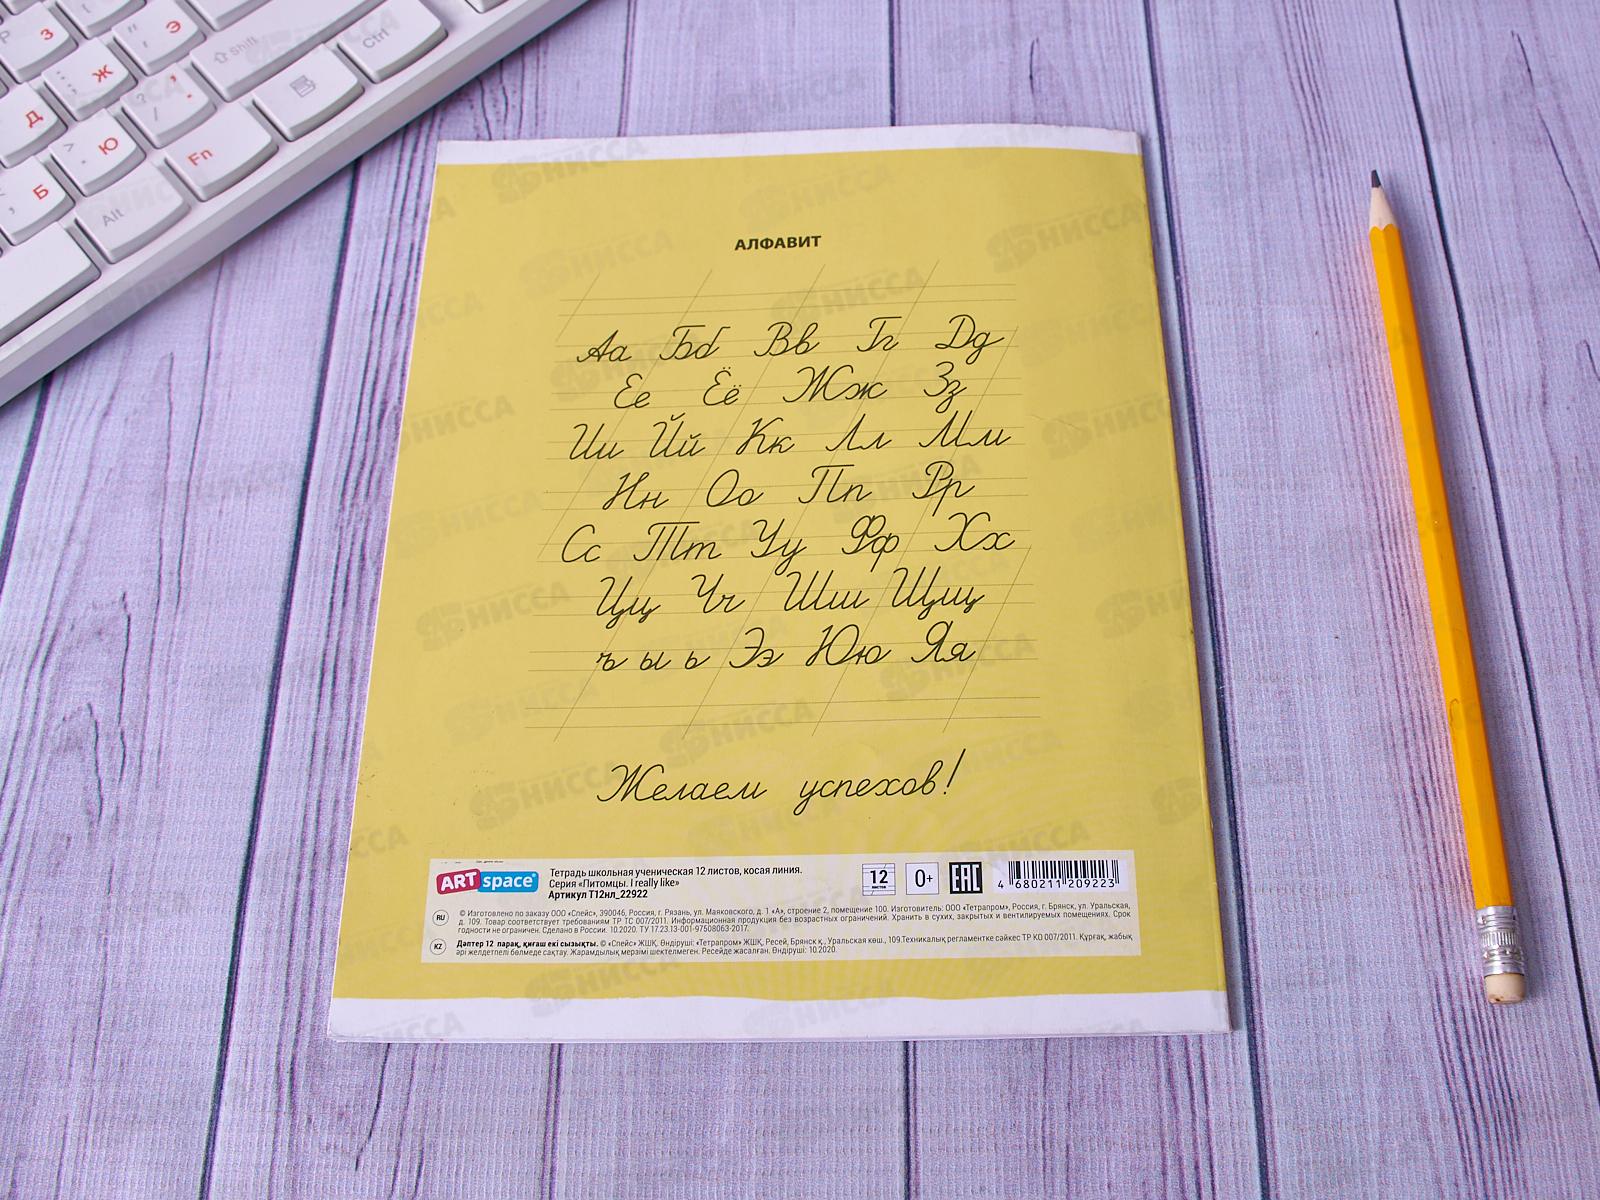 З
Э
Shift
Ctrl
Ж
Д
Ю
Fn
Б
Alt
АЛФАВИТ
Аа Бб Вв Гг Дд
Ее Ёё Жж Зз
Ии Йй Кк Лл Мм
Нн Оо Пп Рр
Сс Тт Уу Фф Хх
Цц Чч Шш Щщ
ъ ы ь Ээ Юю Яя
Желаем успехов!
ARTspace
Тетрадь школьная ученическая 12 листов, косая линия.
Серия «Питомцы. I really like»
Артикул Т12нл_22922
12 листов
0+
EAC
4 680211 209223
RU © Изготовлено по заказу ООО «Спейс», 390046, Россия, г. Рязань, ул. Маяковского, д. 1 «А», строение 2, помещение 100. Изготовитель: ООО «Тетрапром», Россия, г. Брянск, ул. Уральская,
д. 109. Товар соответствует требованиям ТР ТС 007/2011. Информационная продукция без возрастных ограничений. Хранить в сухих, закрытых и вентилируемых помещениях. Срок
годности не ограничен. Сделано в России. 10.2020. ТУ 17.23.13-001-97508063-2017.
KZ Дәптер 12 парақ, қиғаш екі сызықты. © «Спейс» ЖШҚ. Өндіруші: «Тетрапром» ЖШҚ, Ресей, Брянск қ., Уральская көш., 109.Техникалық регламентке сәйкес ТР КО 007/2011. Құрғақ, жабық
әрі желдетпелі бөлмеде сақтау. Жарамдылық мерзімі шектелмеген. Ресейде жасалған. Өндіруші: 10.2020.
НИССА